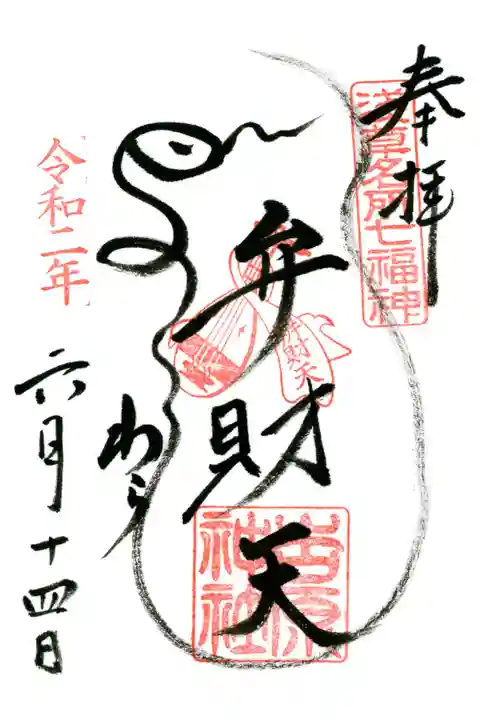 奉拝
浅草名所七福神
弁財天
弁財天
吉原神社
わら
令和二年
六月十四日